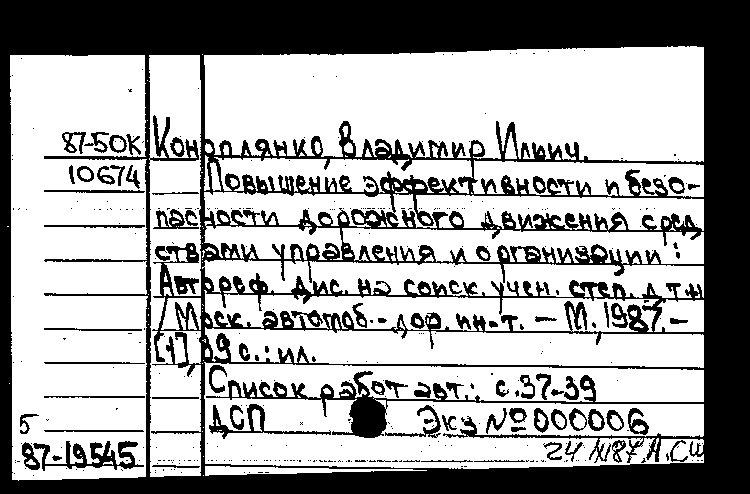 87-50К Коноплянко, Владимир Ильич.
10674 Повышение эффективности и безо-
пасности дорожного движения сред
ствами управления и организации :
Автореф. дис. на соиск. учен. степ. д.т.н
/ Моск. автомоб.-дор. ин-т. — М., 1987. –
[1], 39 с. : ил.
Список работ авт.: с. 37-39
ДСП Экз № 000006
5
87-19545